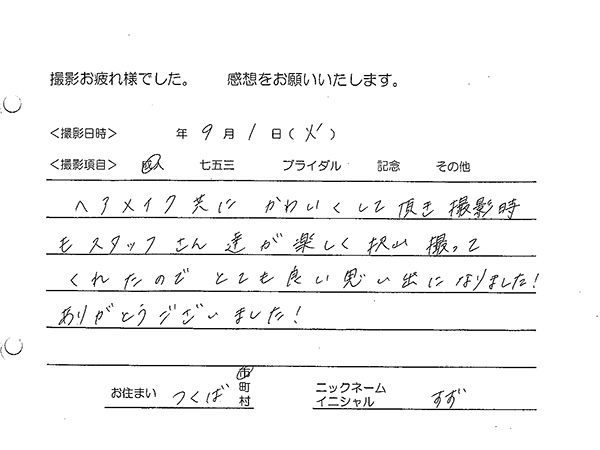 撮影お疲れ様でした。 感想をお願いいたします。
＜撮影日時＞ 年 9 月 1 日 (火)
＜撮影項目＞ 成人 七五三 ブライダル 記念 その他
ヘアメイク共に かわいくして頂き 撮影時
もスタッフさん達が楽しく沢山 撮って
くれたので とても良い思い出になりました!
ありがとうございました!
お住まい つくば 市 町 村 ニックネーム イニシャル すず